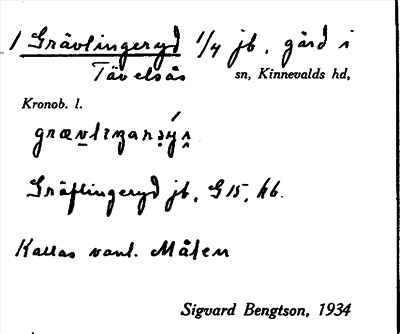 1 Grävlingeryd 1/4 jb. gård i
Tävelsås sn, Kinnevalds hd,
Kronob. l.
Gräflingeryd jb, G 15, kb.
Kallas vanl. Måsen
Sigvard Bengtson, 1934